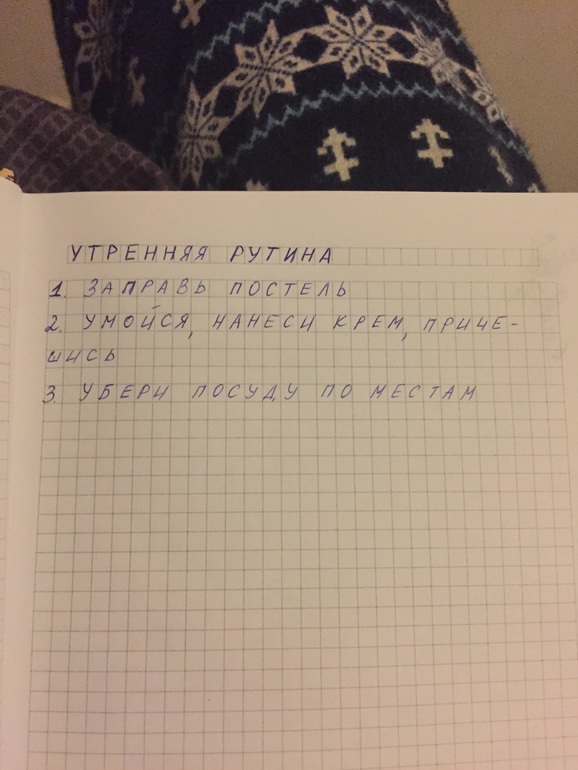 УТРЕННЯЯ РУТИНА
1. ЗАПРАВЬ ПОСТЕЛЬ
2. УМОЙСЯ, НАНЕСИ КРЕМ, ПРИЧЕ-
ШИСЬ
3. УБЕРИ ПОСУДУ ПО МЕСТАМ